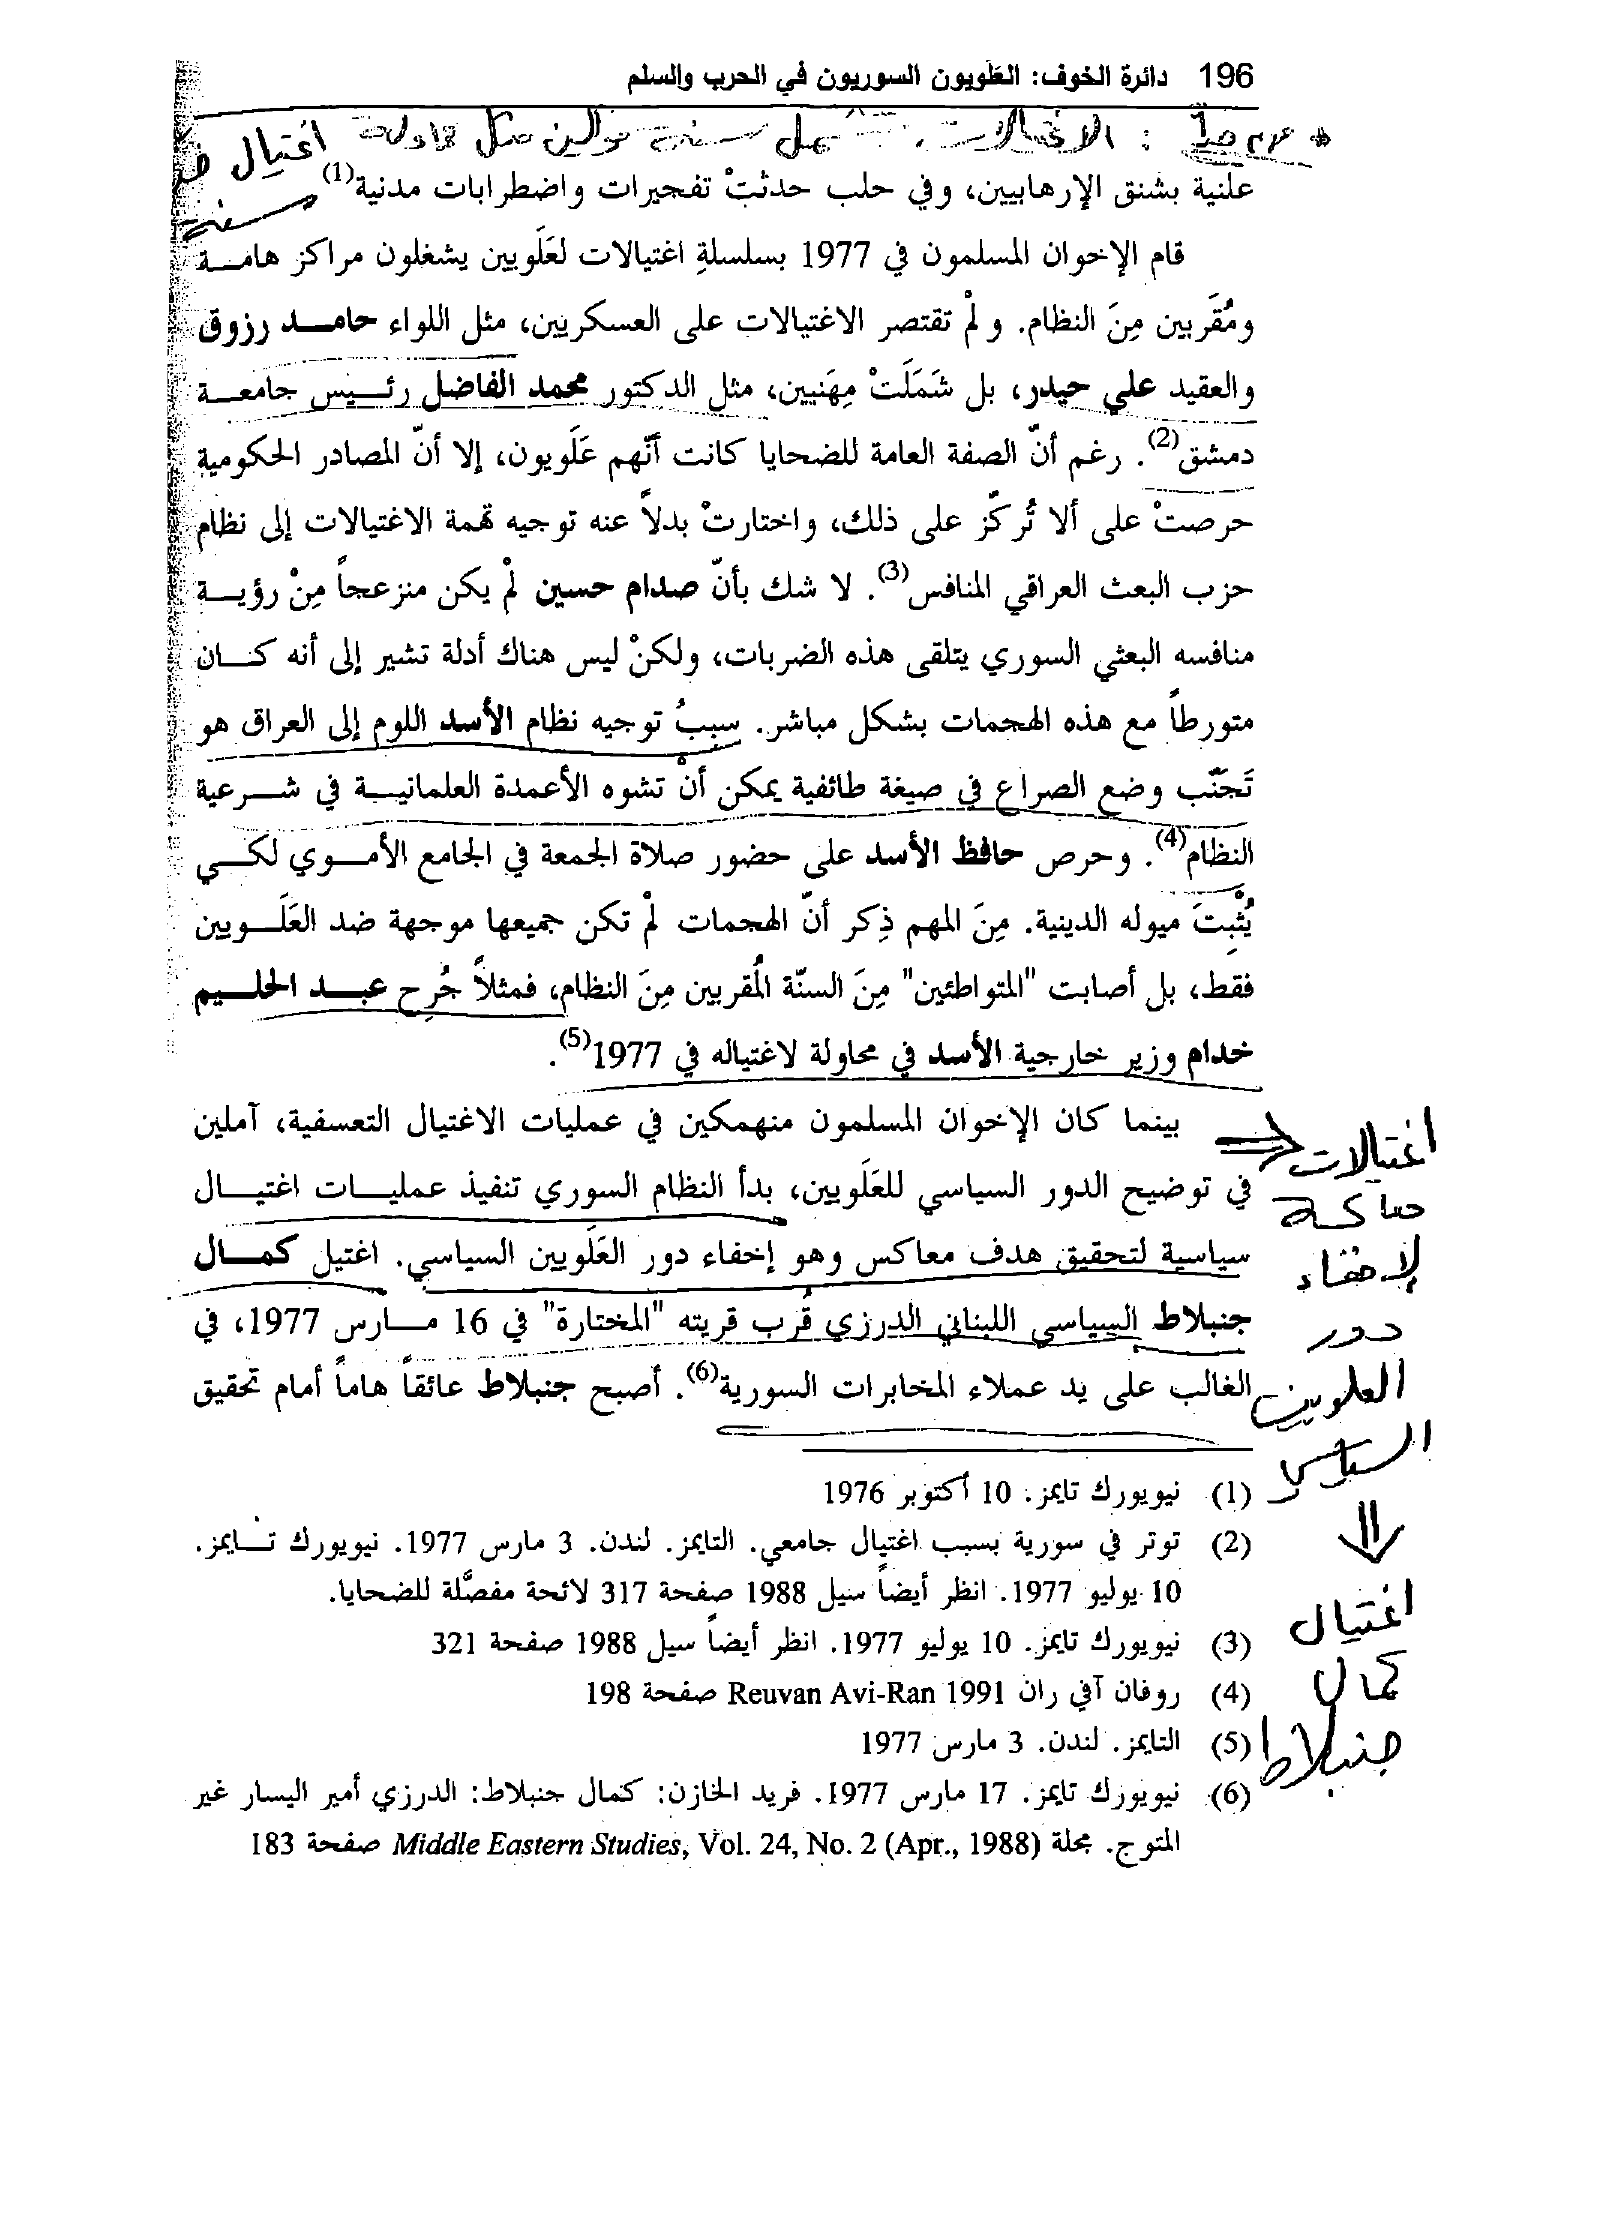 196 دائرة الخوف: العَلَويون السوريون في الحرب والسلم
الاغتيالات شمل موالين مثل محاولة اغتيال
علنية بشنق الإرهابيين، وفي حلب حدثتْ تفجيرات واضطرابات مدنية(1)
قام الإخوان المسلمون في 1977 بسلسلةِ اغتيالات لعَلَويين يشغلون مراكز هامــة
ومُقَربين مِنَ النظام. ولمْ تقتصر الاغتيالات على العسكريين، مثل اللواء حامــد رزوق
والعقيد علي حيدر، بل شَمَلَتْ مِهَنيين، مثل الدكتور محمد الفاضل رئــيس جامعــة
دمشق(2). رغم أنّ الصفة العامة للضحايا كانت أنّهم عَلَويون، إلا أنّ المصادر الحكومية
حرصتْ على ألا تُركّز على ذلك، واختارتْ بدلاً عنه توجيه تهمة الاغتيالات إلى نظام
حزب البعث العراقي المنافس(3). لا شك بأنّ صدام حسين لمْ يكن منزعجاً مِنْ رؤيــة
منافسه البعثي السوري يتلقى هذه الضربات، ولكنْ ليس هناك أدلة تشير إلى أنه كــان
متورطاً مع هذه الهجمات بشكل مباشر. سببُ توجيه نظام الأسد اللوم إلى العراق هو
تَجَنّب وضع الصراع في صيغة طائفية يمكن أنْ تشوه الأعمدة العلمانيــة في شــرعية
النظام(4). وحرص حافظ الأسد على حضور صلاة الجمعة في الجامع الأمــوي لكــي
يُثْبِتَ ميوله الدينية. مِنَ المهم ذِكر أنّ الهجمات لمْ تكن جميعها موجهة ضد العَلَــويين
فقط، بل أصابت "المتواطئين" مِنَ السنّة المُقربين مِنَ النظام، فمثلاً جُرِح عبــد الحلــيم
خدام وزير خارجية الأسد في محاولة لاغتياله في 1977(5).
بينما كان الإخوان المسلمون منهمكين في عمليات الاغتيال التعسفية، آملين
في توضيح الدور السياسي للعَلَويين، بدأ النظام السوري تنفيذ عمليــات اغتيــال
سياسية لتحقيق هدف معاكس وهو إخفاء دور العَلَويين السياسي. اغتيل كمــال
جنبلاط السياسي اللبناني الدرزي قُرب قريته "المختارة" في 16 مــارس 1977، في
الغالب على يد عملاء المخابرات السورية(6). أصبح جنبلاط عائقاً هاماً أمام تحقيق
اغتيالات
لإخفاء
دور
العلويين
السياسي
اغتيال
كمال
جنبلاط
(1) نيويورك تايمز. 10 أكتوبر 1976
(2) توتر في سورية بسبب اغتيال جامعي. التايمز. لندن. 3 مارس 1977. نيويورك تــايمز.
10 يوليو 1977. انظر أيضاً سيل 1988 صفحة 317 لائحة مفصَّلة للضحايا.
(3) نيويورك تايمز. 10 يوليو 1977. انظر أيضاً سيل 1988 صفحة 321
(4) روفان آفي ران Reuvan Avi-Ran 1991 صفحة 198
(5) التايمز. لندن. 3 مارس 1977
(6) نيويورك تايمز. 17 مارس 1977. فريد الخازن: كنمال جنبلاط: الدرزي أمير اليسار غير
المتوج. مجلة Middle Eastern Studies, Vol. 24, No. 2 (Apr., 1988) صفحة 183